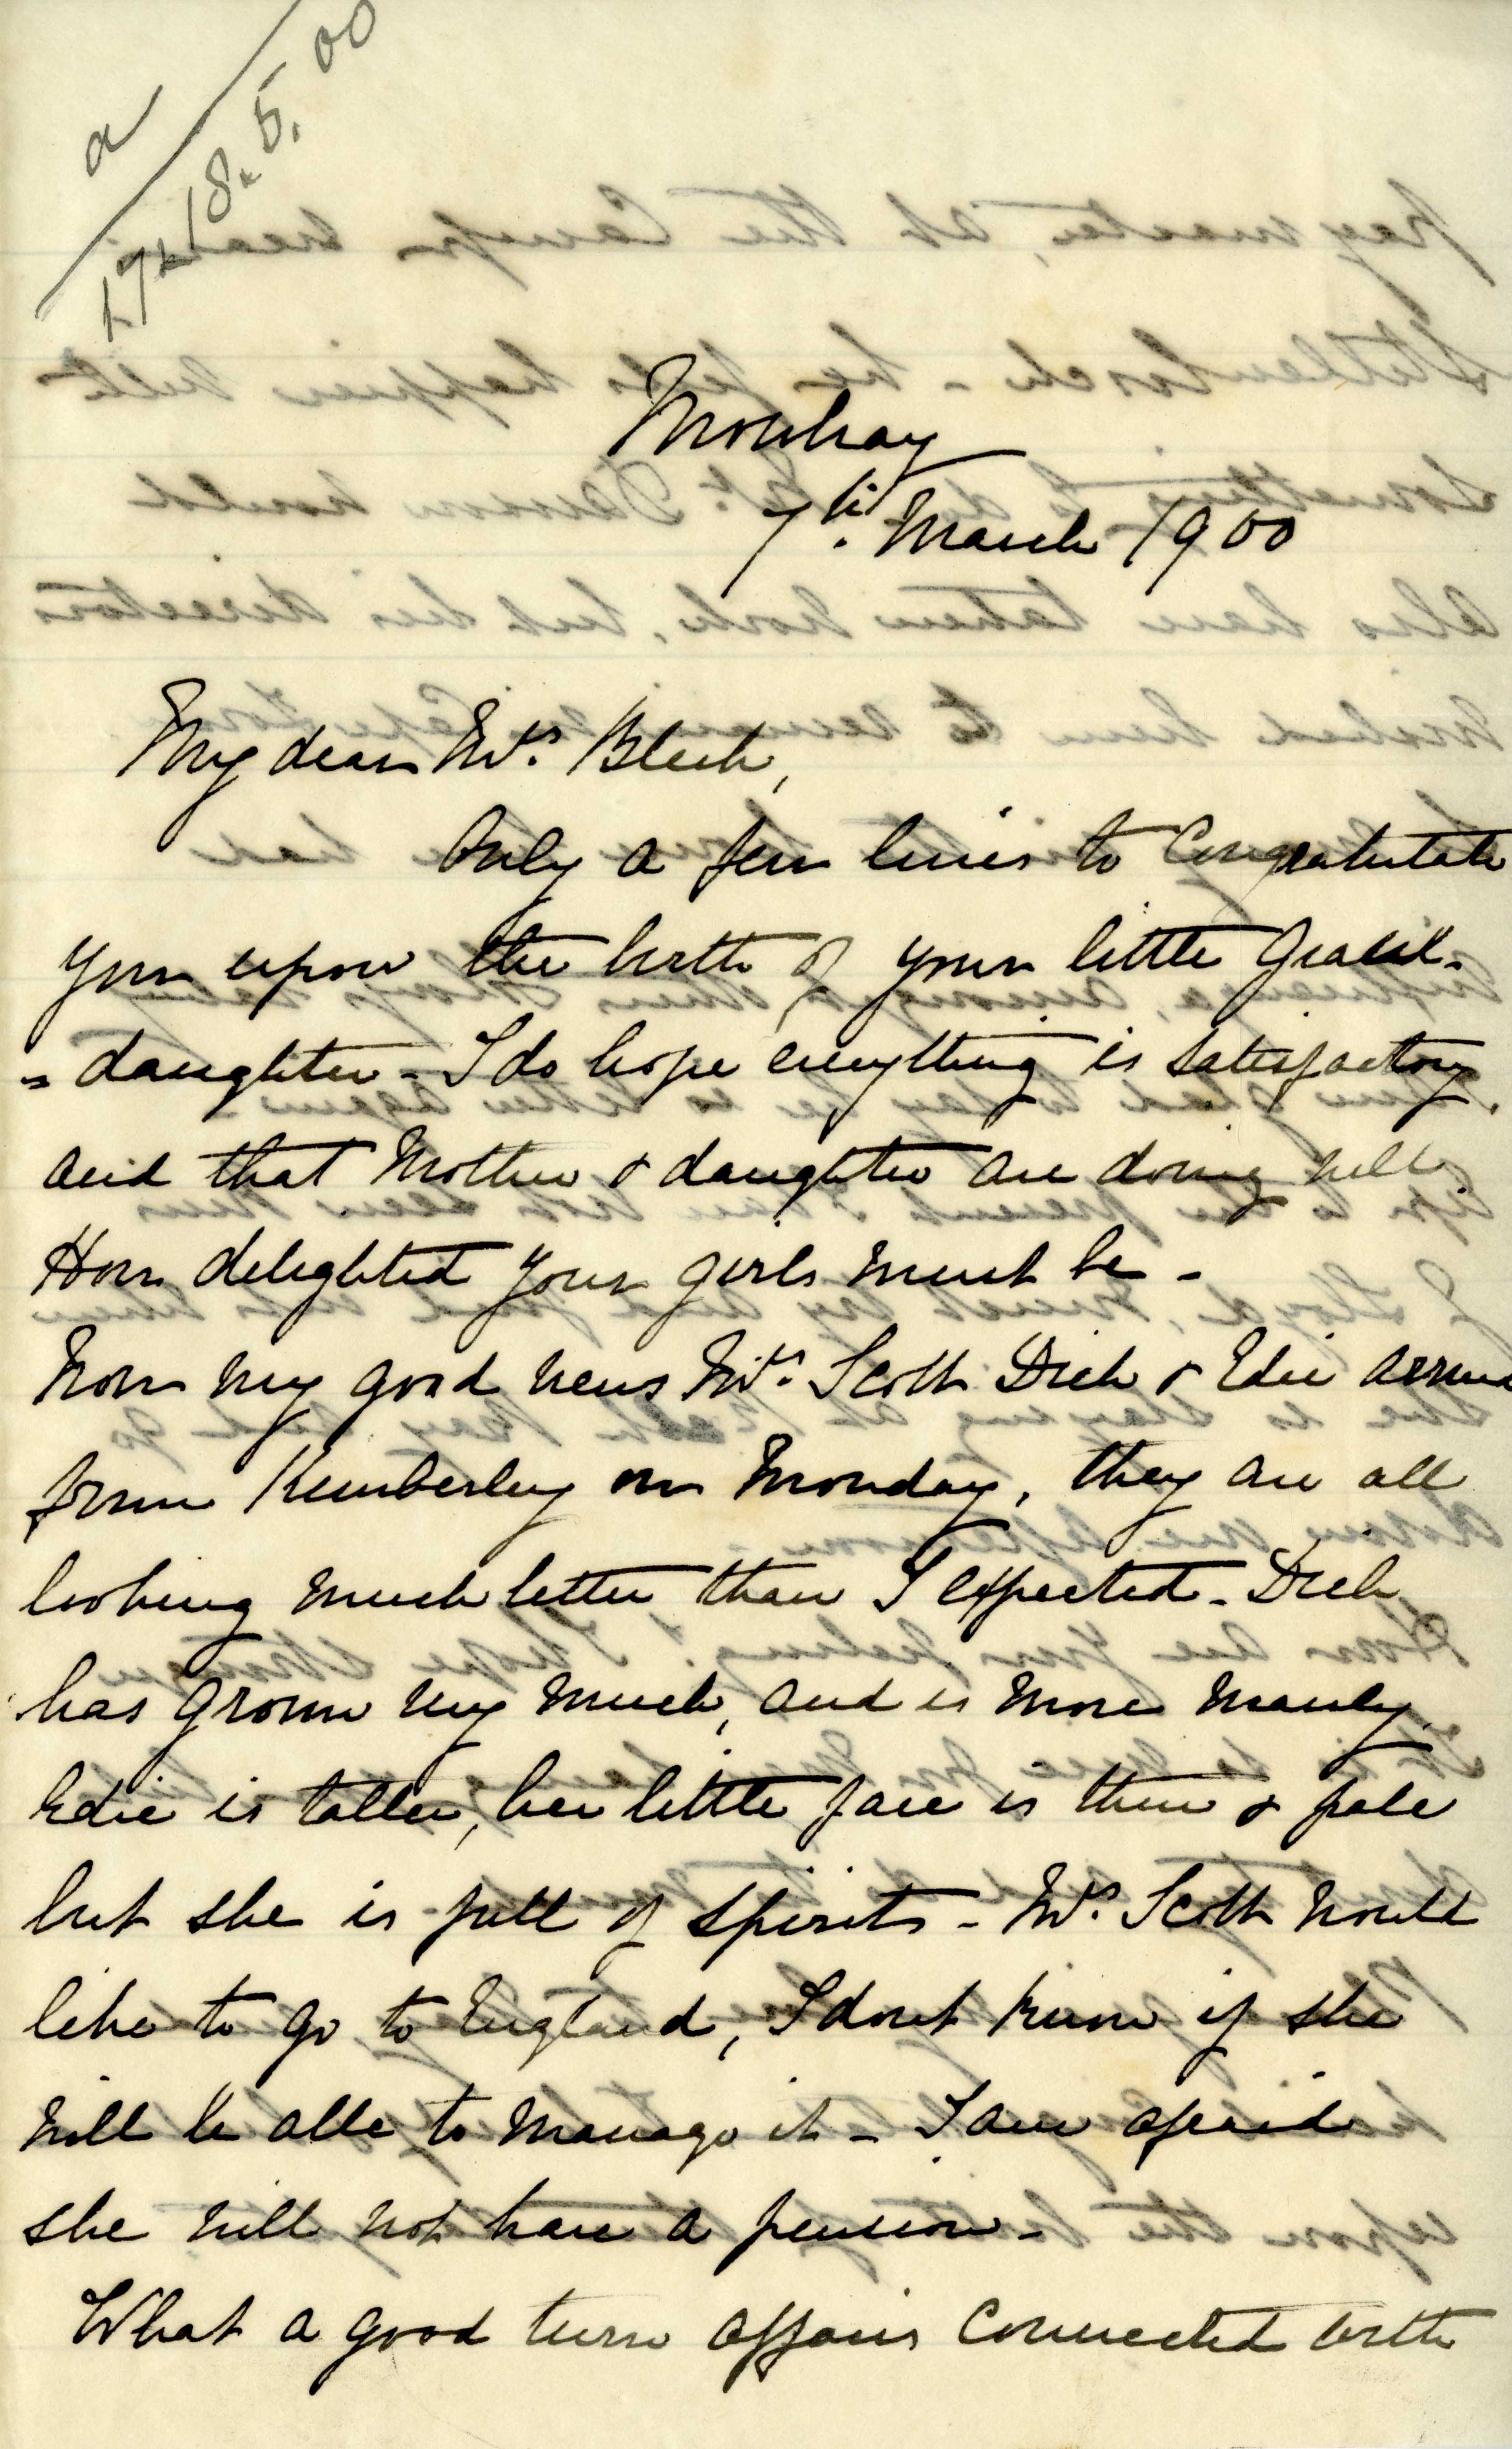 a
17 & 18. 5. 00
Mowbray
7th. March 1900
My dear Mrs. Bleek,
Only a few lines to Congratulate
you upon the birth of your little Grand-
= daughter - I do hope everything is satisfactory,
and that Mother & daughter are doing well
How delighted your girls must be -
Now my good news Mrs. Scott Dick & Edie arrived
from Kimberley on Monday, they are all
looking much better than I expected - Dick
has grown very much, and is more manly,
Edie is taller, her little face is thin & pale
but she is full of spirits - Mrs. Scott would
like to go to England, I dont know if she
will be able to manage it - I am afraid
she will not have a pension -
What a good turn affairs connected with